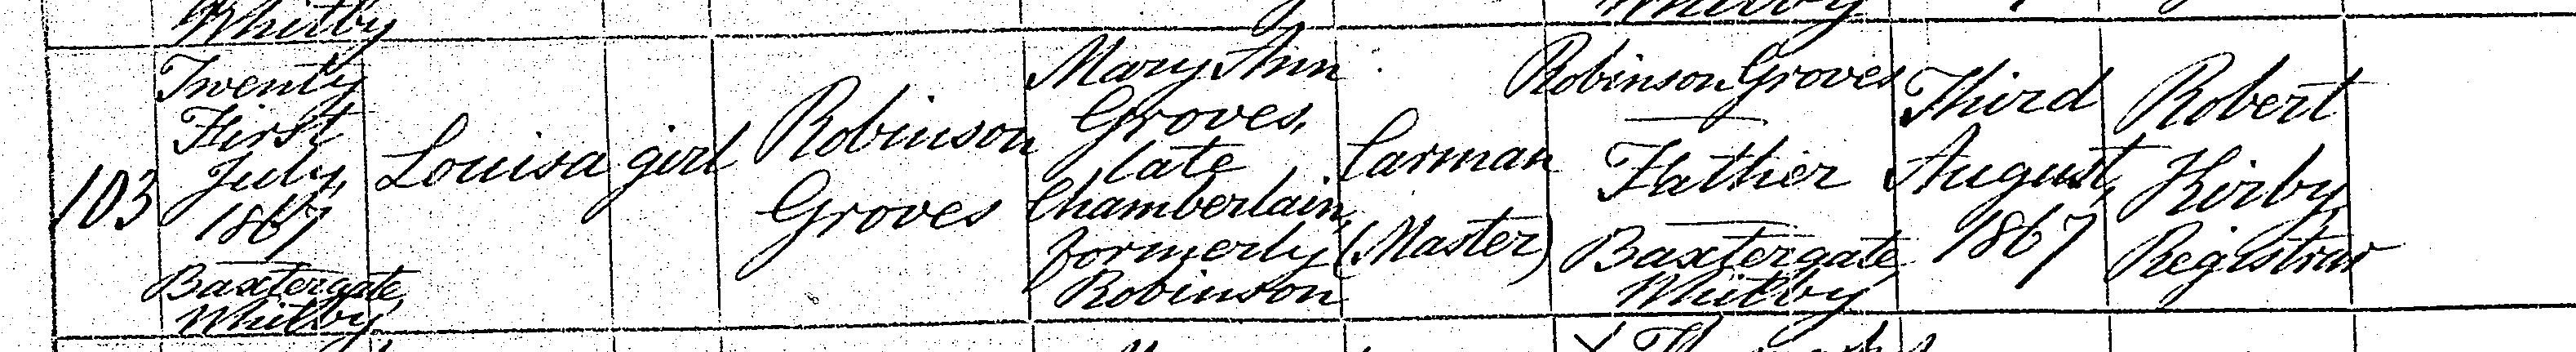 Whitby
Whitby
103
Twenty
First
July,
1867
Baxtergate,
Whitby
Louisa
girl
Robinson
Groves
Mary Ann
Groves,
late
Chamberlain,
formerly
Robinson
Carman
(Master)
Robinson Groves
Father
Baxtergate
Whitby
Third
August,
1867
Robert
Kirby
Registrar